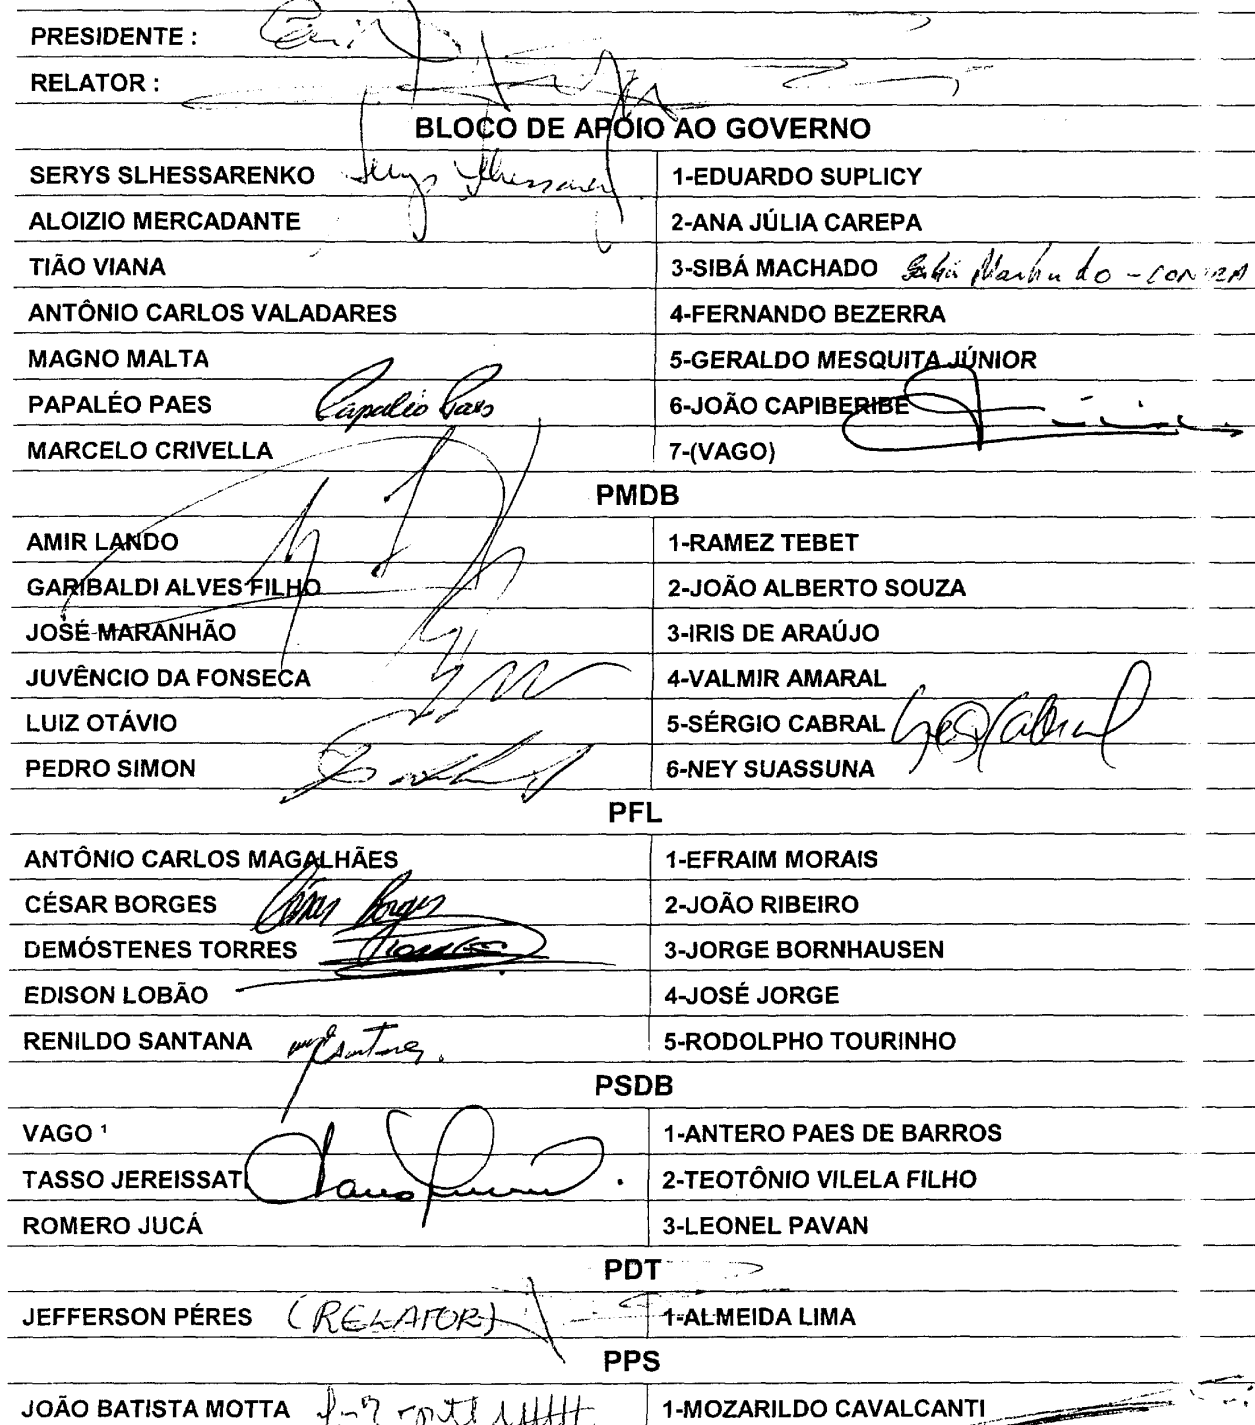 PRESIDENTE :
RELATOR :
BLOCO DE APOIO AO GOVERNO
SERYS SLHESSARENKO Serys Slhessarenko 1-EDUARDO SUPLICY
ALOIZIO MERCADANTE 2-ANA JÚLIA CAREPA
TIÃO VIANA 3-SIBÁ MACHADO Sibá Machado - CONTRA
ANTÔNIO CARLOS VALADARES 4-FERNANDO BEZERRA
MAGNO MALTA 5-GERALDO MESQUITA JÚNIOR
PAPALÉO PAES Papaléo Paes 6-JOÃO CAPIBERIBE
MARCELO CRIVELLA 7-(VAGO)
PMDB
AMIR LANDO 1-RAMEZ TEBET
GARIBALDI ALVES FILHO 2-JOÃO ALBERTO SOUZA
JOSÉ MARANHÃO 3-IRIS DE ARAÚJO
JUVÊNCIO DA FONSECA 4-VALMIR AMARAL
LUIZ OTÁVIO 5-SÉRGIO CABRAL
PEDRO SIMON 6-NEY SUASSUNA
PFL
ANTÔNIO CARLOS MAGALHÃES 1-EFRAIM MORAIS
CÉSAR BORGES César Borges 2-JOÃO RIBEIRO
DEMÓSTENES TORRES 3-JORGE BORNHAUSEN
EDISON LOBÃO 4-JOSÉ JORGE
RENILDO SANTANA 5-RODOLPHO TOURINHO
PSDB
VAGO ¹ 1-ANTERO PAES DE BARROS
TASSO JEREISSATI 2-TEOTÔNIO VILELA FILHO
ROMERO JUCÁ 3-LEONEL PAVAN
PDT
JEFFERSON PÉRES (RELATOR) 1-ALMEIDA LIMA
PPS
JOÃO BATISTA MOTTA 1-MOZARILDO CAVALCANTI